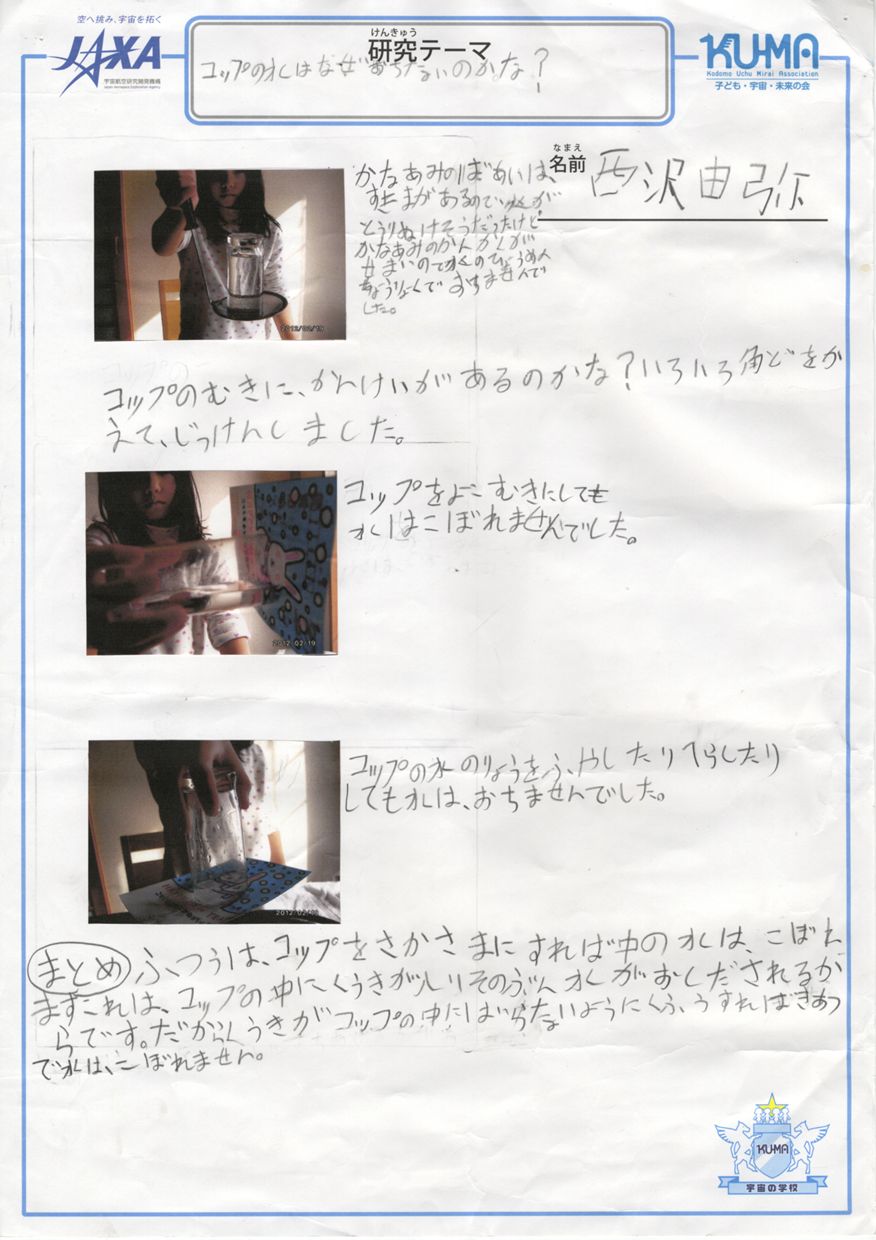 空へ挑み、宇宙を拓く
JAXA
宇宙航空研究開発機構
Japan Aerospace Exploration Agency
けんきゅう
研究テーマ
コップの水はなぜおちないのかな?
KU-MA
Kodomo Uchu Mirai Association
子ども・宇宙・未来の会
なまえ
名前 西沢由弥
かなあみのばあいは、
すきまがあるので水が
とうりぬけそうだったけど
かなあみのかんかくが
せまいので水のひょうめん
ちょうりょくでおちませんで
した。
2012/02/19
コップのむきに、かんけいがあるのかな?いろいろ角どをか
えて、じっけんしました。
コップをよこむきにしても
水はこぼれませんでした。
2012/02/19
コップの水のりょうをふやしたりへらしたり
しても水は、おちませんでした。
2012/02/
まとめ ふつうは、コップをさかさまにすれば中の水は、こぼれ
ますこれは、コップの中にくうきがいりそのぶん水がおしだされるか
らです。だからくうきがコップの中にはいらないようにくふうすればきあつ
で水は、こぼれません。
KU-MA
宇宙の学校